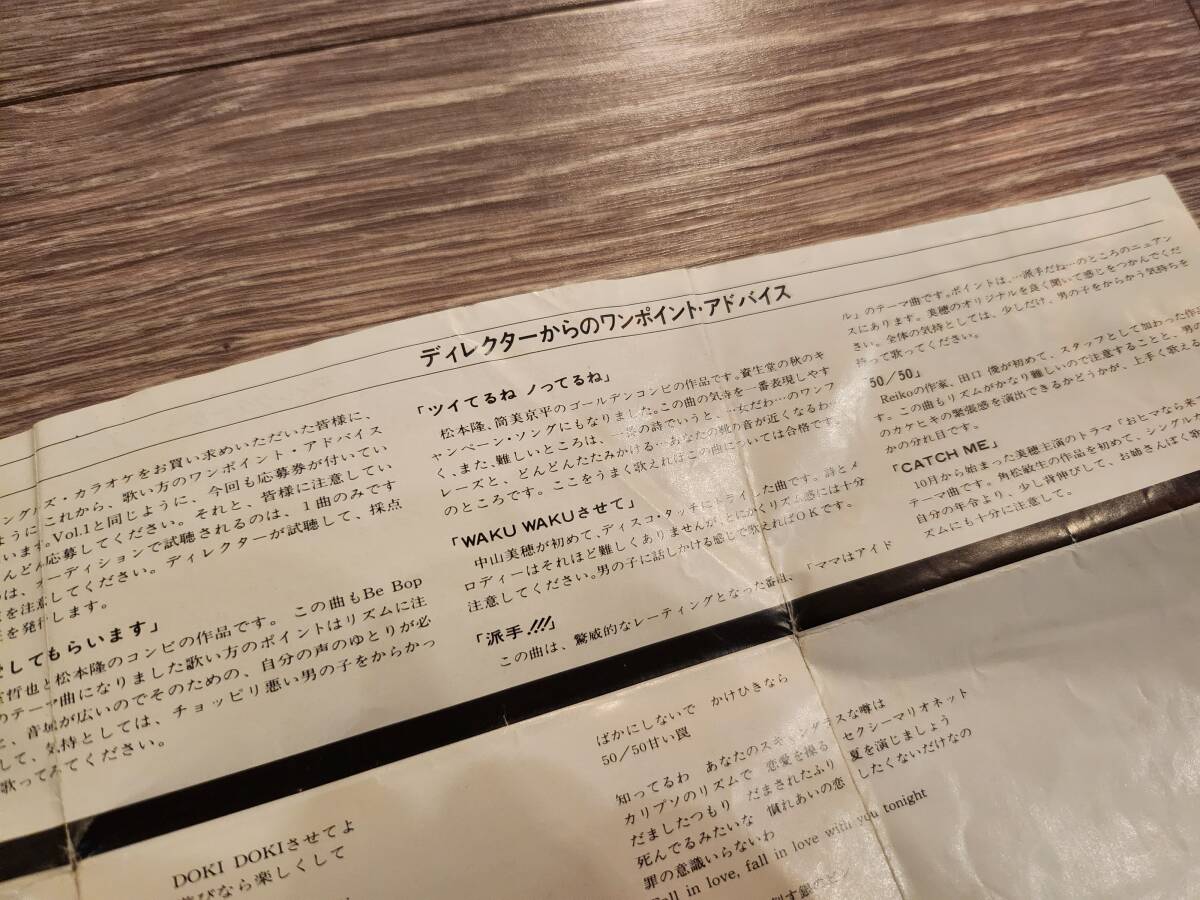 ディレクターからのワンポイント・アドバイス
ズ・カラオケをお買い求めいただいた皆様に、
ように これから、歌い方のワンポイント・アドバイス
います。Vol.1と同じように、今回も応募券が付いてい
んどん応募してください。それと、皆様に注意してい
のは、オーディションで試聴されるのは、1曲のみです
を注意してください。ディレクターが試聴して、採点
を発行します。
してもらいます」
哲也と松本隆のコンビの作品です。この曲もBe Bop
のテーマ曲になりました歌い方のポイントはリズムに注
と、音域が広いのでそのための、自分の声のゆとりが必
して、気持としては、チョッピリ悪い男の子をからかっ
歌ってみてください。
「ツイてるね ノってるね」
松本隆、筒美京平のゴールデンコンビの作品です。資生堂の秋のキ
ャンペーン・ソングにもなりました。この曲の気持を一番表現しやす
く、また、難しいところは、一番の詩でいうと、…女だわ…のワンフ
レーズと、どんどんたたみかける…あなたの靴の音が近くなるわ…
のところです。ここをうまく歌えればこの曲については合格です。
「WAKU WAKUさせて」
中山美穂が初めて、ディスコ・タッチにトライした曲です。詩とメ
ロディーはそれほど難しくありませんが、とにかくリズム感には十分
注意してください。男の子に話しかける感じで歌えればOKです。
「派手!!!」
この曲は、驚威的なレーティングとなった番組、「ママはアイド
ル」のテーマ曲です。ポイントは、…派手だね…のところのニュアン
スにあります。美穂のオリジナルを良く聞いて感じをつかんでくだ
さい。全体の気持としては、少しだけ、男の子をからかう気持ちを
持って歌ってください。
「50/50」
Reikoの作家、田口 俊が初めて、スタッフとして加わった作品
す。この曲もリズムがかなり難しいので注意すること、男の
のカケヒキの緊張感を演出できるかどうかが、上手く歌える
かの分れ目です。
「CATCH ME」
10月から始まった美穂主演のドラマ「おヒマなら来て
テーマ曲です。角松敏生の作品を初めて、シングル
自分の年令より、少し背伸びして、お姉さんぽく歌
ズムにも十分に注意して。
DOKI DOKIさせてよ
びなら楽しくして
ばかにしないで かけひきなら
50/50甘い罠
知ってるわ あなたのスキャンダラスな噂は
カリプソのリズムで 恋愛を操る セクシーマリオネット
だましたつもり だまされたふり 夏を演じましょう
死んでるみたいな 慣れあいの恋 したくないだけなの
罪の意識いらないわ
Fall in love, fall in love with you tonight
刺す銀のピン